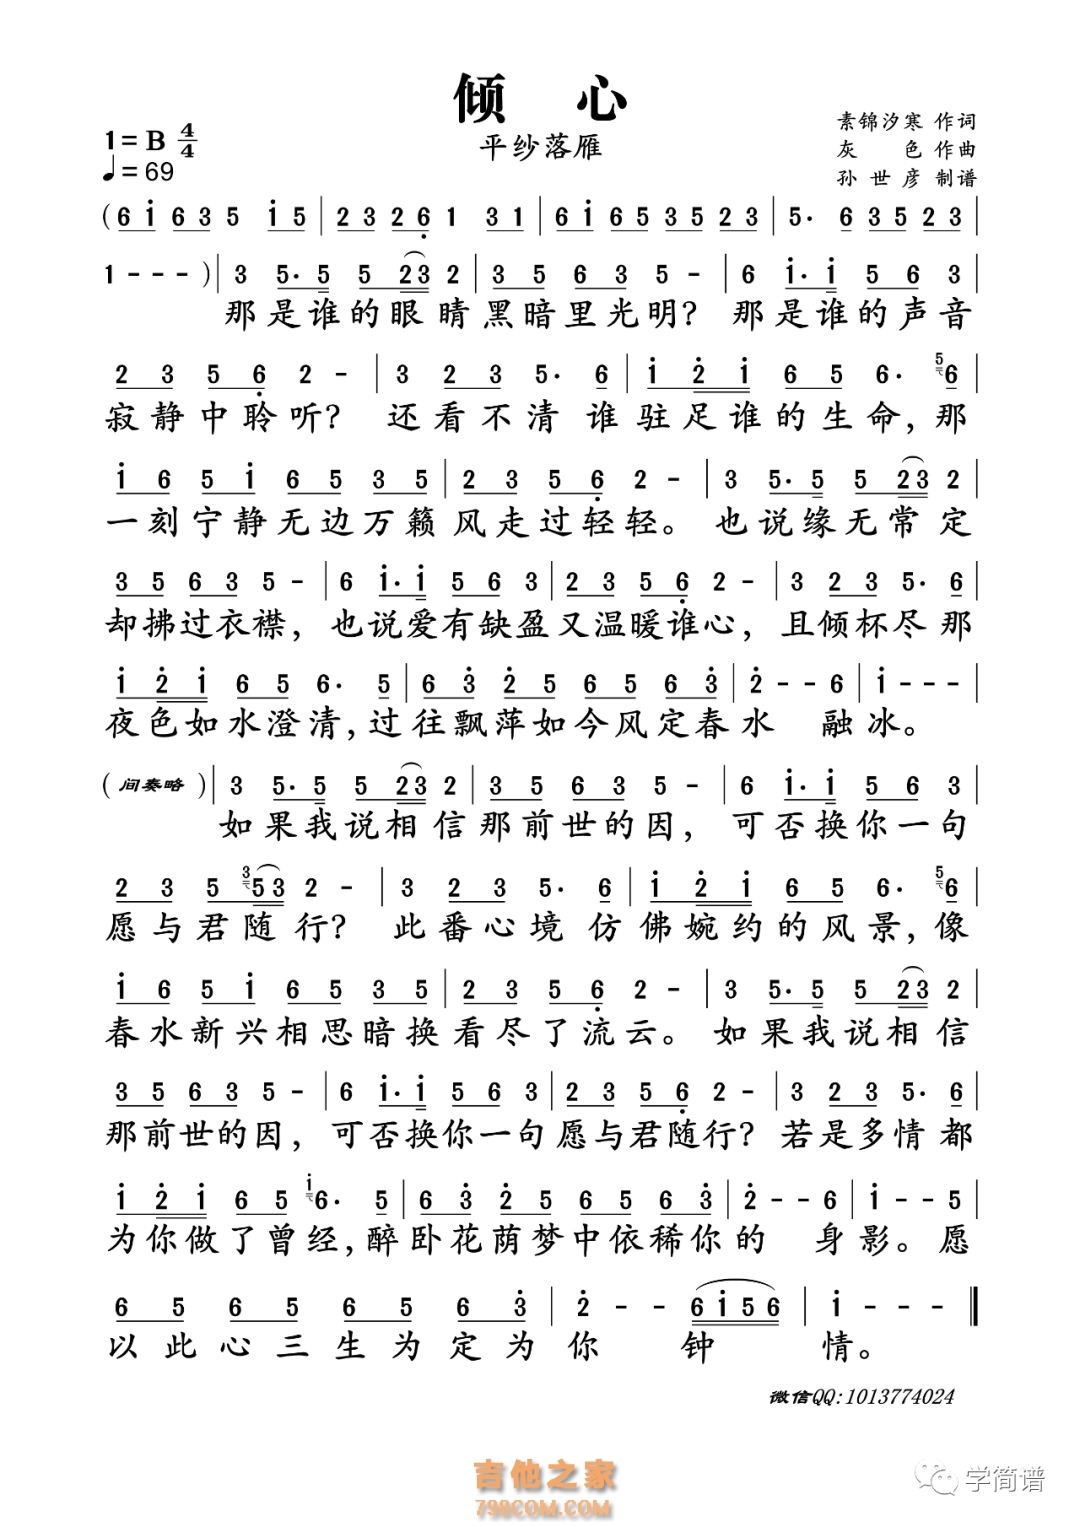 倾 心
平纱落雁
1=B 4/4
♩=69
素锦汐寒 作词
灰 色 作曲
孙世彦 制谱
(6 i 6 3 5 i 5 | 2 3 2 6 1 3 1 | 6 i 6 5 3 5 2 3 | 5· 6 3 5 2 3 |
1 - - - ) | 3 5· 5 5 2 3 2 | 3 5 6 3 5 - | 6 i· i 5 6 3 |
那是谁的眼睛黑暗里光明? 那是谁的声音
2 3 5 6 2 - | 3 2 3 5· 6 | i 2 i 6 5 6· 5 6 |
寂静中聆听? 还看不清谁驻足谁的生命,那
i 6 5 i 6 5 3 5 | 2 3 5 6 2 - | 3 5· 5 5 2 3 2 |
一刻宁静无边万籁风走过轻轻。也说缘无常定
3 5 6 3 5 - | 6 i· i 5 6 3 | 2 3 5 6 2 - | 3 2 3 5· 6 |
却拂过衣襟, 也说爱有缺盈又温暖谁心, 且倾杯尽那
i 2 i 6 5 6· 5 | 6 3 2 5 6 5 6 3 | 2 - - 6 | i - - - |
夜色如水澄清,过往飘萍如今风定春水 融冰。
( 间奏略 ) | 3 5· 5 5 2 3 2 | 3 5 6 3 5 - | 6 i· i 5 6 3 |
如果我说相信那前世的因, 可否换你一句
2 3 5 3 5 3 2 - | 3 2 3 5· 6 | i 2 i 6 5 6· 5 6 |
愿与君随行? 此番心境仿佛婉约的风景,像
i 6 5 i 6 5 3 5 | 2 3 5 6 2 - | 3 5· 5 5 2 3 2 |
春水新兴相思暗换看尽了流云。如果我说相信
3 5 6 3 5 - | 6 i· i 5 6 3 | 2 3 5 6 2 - | 3 2 3 5· 6 |
那前世的因, 可否换你一句愿与君随行? 若是多情都
i 2 i 6 5 i 6· 5 | 6 3 2 5 6 5 6 3 | 2 - - 6 | i - - 5 |
为你做了曾经,醉卧花荫梦中依稀你的 身影。愿
6 5 6 5 6 5 6 3 | 2 - - 6 i 5 6 | i - - - ‖
以此心三生为定为你 钟 情。
微信QQ:1013774024
吉他之家
798COM.COM
学简谱